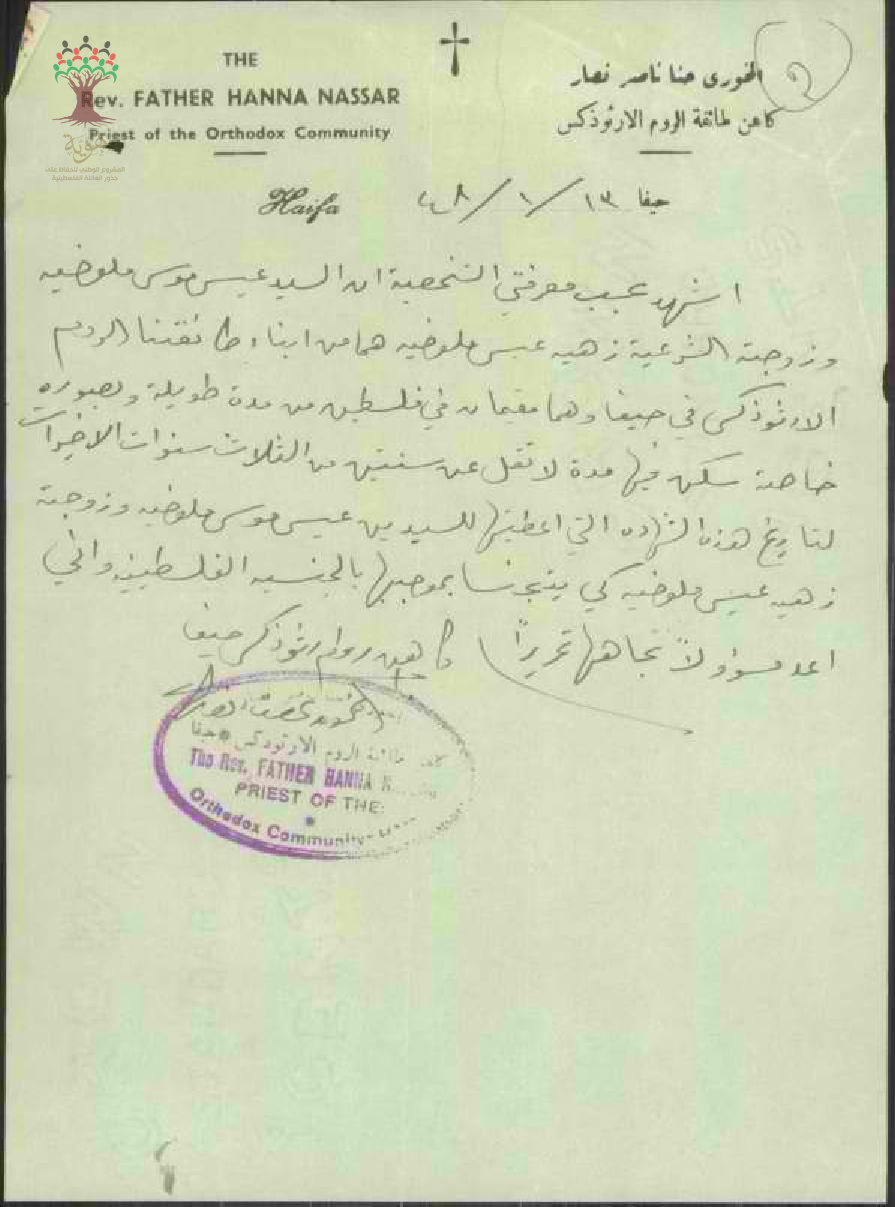 THE
Rev. FATHER HANNA NASSAR
Priest of the Orthodox Community
الخوري حنا ناصر نصار
كاهن طائفة الروم الارثوذكس
2
المشروع الوطني للحفاظ على
جذور العائلة الفلسطينية
Haifa
حيفا ١٣/١/٤٨
اشهد بحسب معرفتي الشخصية ان السيد عيسى موسى
وزوجته الشرعية زهيه عيسى هما من ابناء طائفتنا الروم
الارثوذكس في حيفا وهما مقيمان في فلسطين من مدة طويلة وبصوره
خاصة سكن فيها مدة لا تقل عن سنتين من الثلاث سنوات الاخيرات
لتاريخ هذه الشهاده التي اعطيتها للسيدين عيسى موسى وزوجته
زهيه عيسى كي يتجنسا بموجبها بالجنسيه الفلسطينيه واني
اعد مسؤولاً تجاهها تحريراً كاهن روم ارثوذكس حيفا
طائفة الروم الارثوذكس حيفا
The Rev. FATHER HANNA
PRIEST OF THE
Orthodox Community